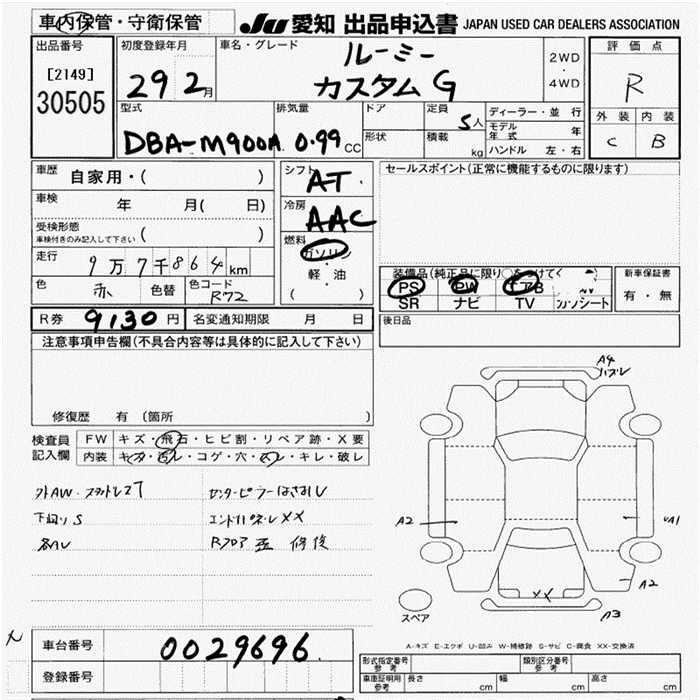 車内保管・守衛保管
JU 愛知 出品申込書 JAPAN USED CAR DEALERS ASSOCIATION
出品番号
[2149]
30505
初度登録年月
29 2月
車名・グレード
ルーミー
カスタムG
2WD
・
4WD
評価点
R
外装 内装
C B
型式
DBA-M900A
排気量
0.99 CC
ドア
形状
定員
5人
積載
kg
ディーラー・並行
モデル年式 年
ハンドル 左・右
車歴
自家用・( )
車検
年 月( 日)
受検形態
車検付きのみ記入して下さい ( )
走行
9万7千864km
色
赤 色替
色コード
R72
シフト
AT
冷房
AAC
燃料
ガソリン
・
軽油
( )
セールスポイント(正常に機能するものに限ります)
PS PW
SR ナビ TV カワシート
新車保証書
有・無
R券 9130円
名変通知期限 月 日
後日品
注意事項申告欄(不具合内容等は具体的に記入して下さい)
修復歴 有 〔箇所
検査員
記入欄
FW キズ・飛石・ヒビ割・リペア跡・X要
内装 キズ・汚レ・コゲ・穴・スレ・キレ・破レ
下廻りS
各ル
センターピラーはさおし
エンドパネルXX
Rフロア 歪 修後
A4
A2
A1
A2
XX
A3
スペア
A-キズ E-エクボ U-凹み W-補修跡 S-サビ C-腐食 XX-交換済
車台番号
0029696
登録番号
形式指定番号
参考
類別区分番号
参考
車庫証明用
参考
長さ cm
幅 cm
高さ cm